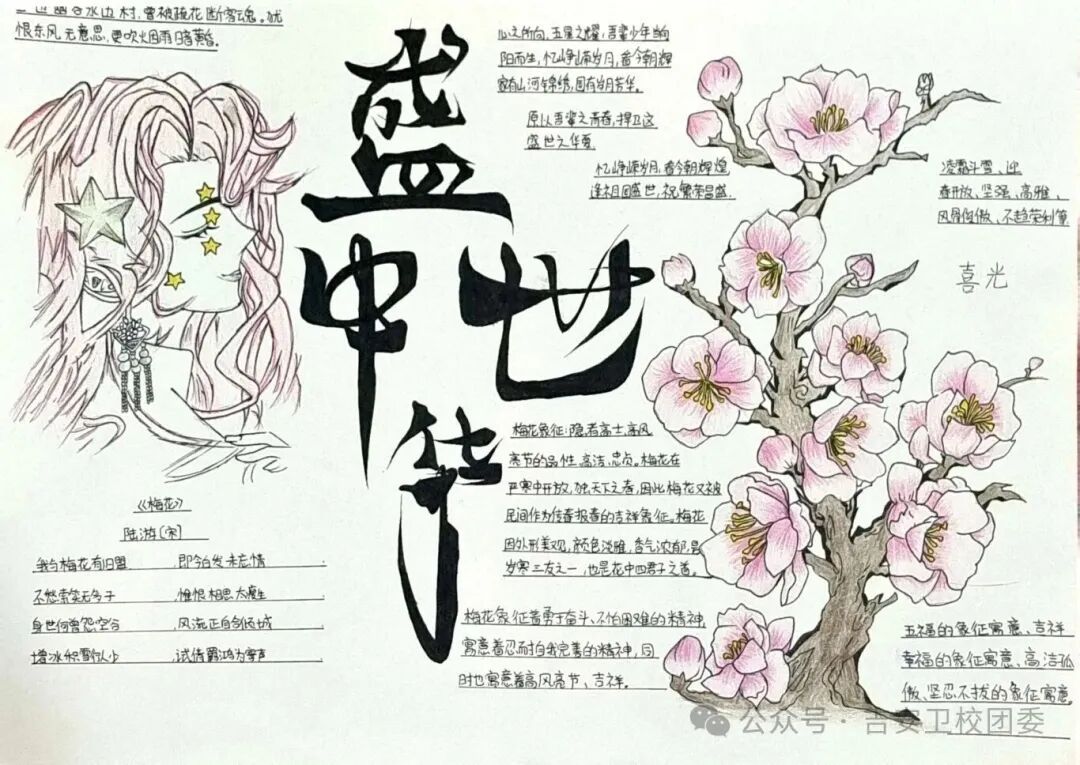 幽谷水边村,曾被疏花断客魂。犹
恨东风无意思,更吹烟雨暗黄昏。
盛
世
中
华
心之所向,五星之耀,吾辈少年当向
阳而生,忆峥嵘岁月,看今朝辉
家有山河锦绣,国有岁月芳华。
原以吾辈之青春,捍卫这
盛世之华夏
忆峥嵘岁月,看今朝辉煌
逢祖国盛世,祝繁荣昌盛.
凌霜斗雪、迎
春开放、坚强、高雅、
风骨俊傲、不趋荣利等
喜光
《梅花》
陆游(宋)
我与梅花有旧盟 即今白发未忘情
不愁索笑无多子 惟恨相思太瘦生
身世何曾怨空谷 风流正自合倾城
增冰积雪似少 试倩霜鸿为寄声
梅花象征:隐者高士,高风
亮节的品性,高洁、忠贞。梅花在
严寒中开放,独天下之春,因此梅花又被
民间作为传春报春的吉祥象征。梅花
因外形美观,颜色淡雅,香气浓郁,是
岁寒三友之一,也是花中四君子之首。
梅花象征着勇于奋斗、不怕困难的精神
寓意着忍而拍自我完善的精神,同
时也寓意着高风亮节、吉祥。
五福的象征寓意、吉祥
幸福的象征寓意、高洁孤
傲、坚忍不拔的象征寓意。
公众号·吉安卫校团委